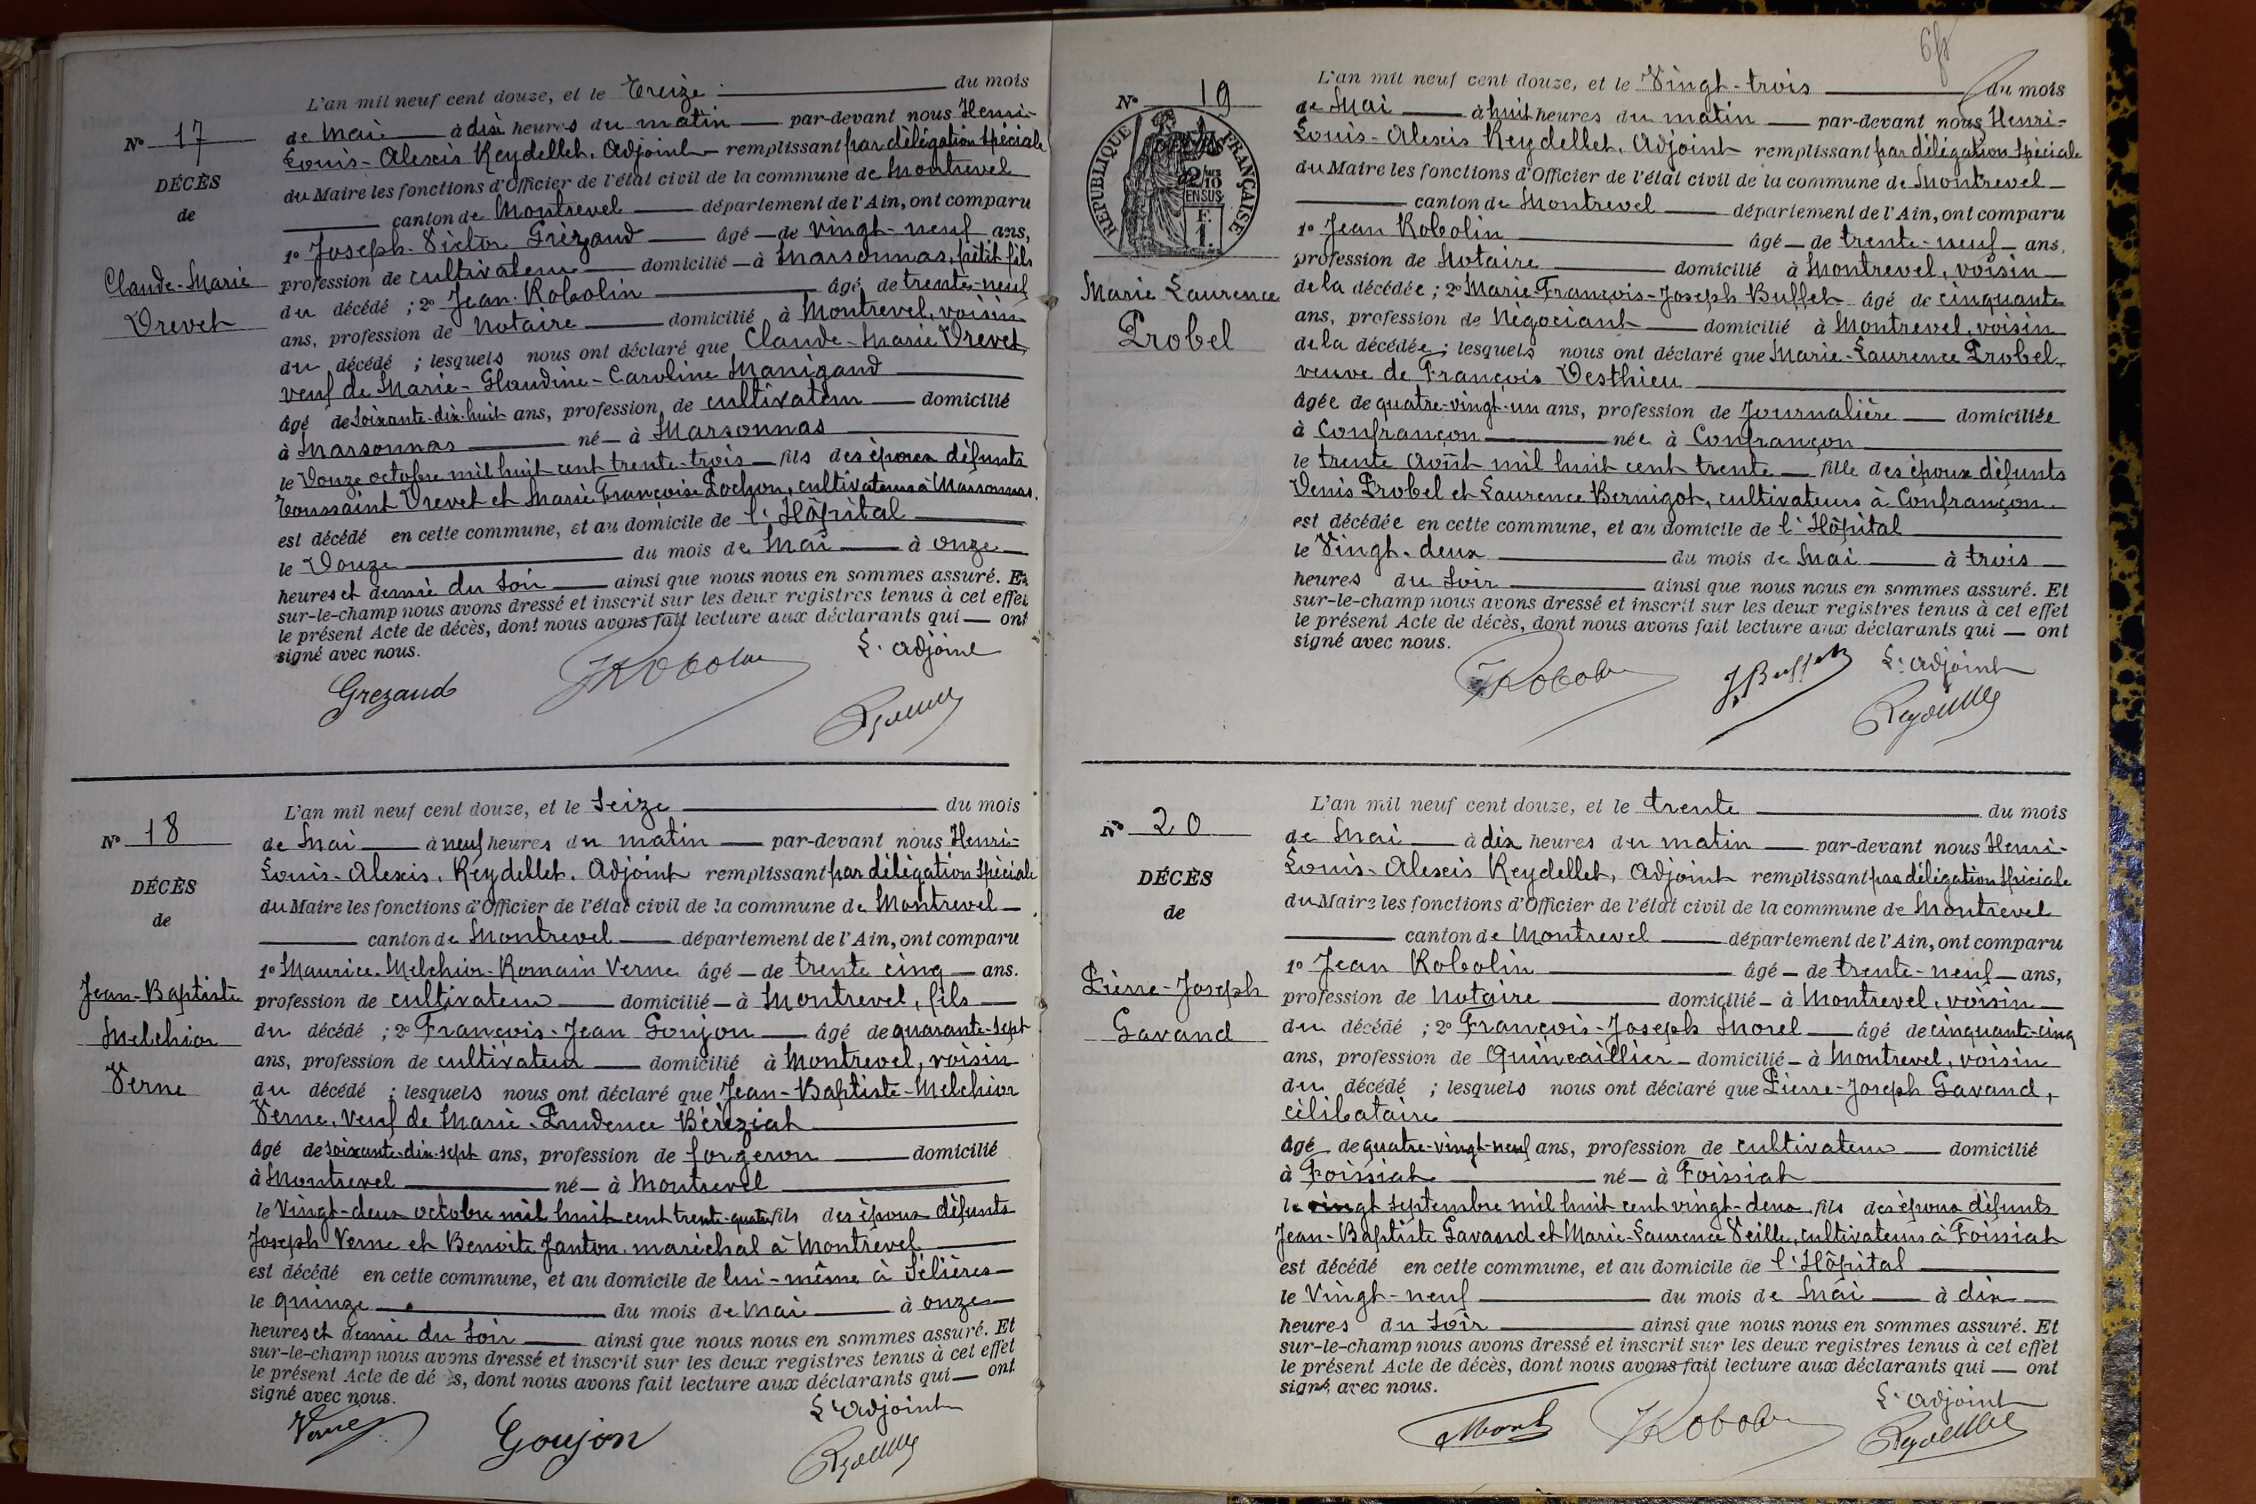 L'an mil neuf cent douze, et le Treize du mois
No 17
de Mai à dix heures du matin par-devant nous Henri-
Louis-Alexis Reydellet, Adjoint remplissant par délégation Spéciale
DÉCÈS
du Maire les fonctions d'Officier de l'état civil de la commune de Montrevel
de
canton de Montrevel département de l'Ain, ont comparu
1o Joseph-Victor Grézaud âgé de vingt-neuf ans,
Claude-Marie
profession de cultivateur domicilié à Marsonnas, petit fils
Drevet
du décédé ; 2o Jean Robolin âgé de trente-neuf
ans, profession de Notaire domicilié à Montrevel, voisin
du décédé ; lesquels nous ont déclaré que Claude-Marie Drevet,
veuf de Marie-Glaudine-Caroline Manigand
âgé de soixante-dix-huit ans, profession de cultivateur domicilié
à Marsonnas né à Marsonnas
le Douze octobre mil huit cent trente-trois fils des époux défunts
Toussaint Drevet et Marie Françoise Pochon, cultivateurs à Marsonnas.
est décédé en cette commune, et au domicile de l'Hôpital
le Douze du mois de Mai à onze
heures et demie du Soir ainsi que nous nous en sommes assuré. Et
sur-le-champ nous avons dressé et inscrit sur les deux registres tenus à cet effet
le présent Acte de décès, dont nous avons fait lecture aux déclarants qui ont
signé avec nous.
L'adjoint
Grezaud
JRobolin
Reydellet
L'an mil neuf cent douze, et le Seize du mois
No 18
de Mai à neuf heures du matin par-devant nous Henri-
Louis-Alexis, Reydellet, Adjoint remplissant par délégation Spéciale
DÉCÈS
du Maire les fonctions d'Officier de l'état civil de la commune de Montrevel
de
canton de Montrevel département de l'Ain, ont comparu
1o Maurice-Melchior-Romain Verne âgé de trente cinq ans.
Jean-Baptiste
profession de cultivateur domicilié à Montrevel, fils
Melchior
du décédé ; 2o François-Jean Goujon âgé de quarante-sept
Verne
ans, profession de cultivateur domicilié à Montrevel, voisin
du décédé ; lesquels nous ont déclaré que Jean-Baptiste-Melchior
Verne, Veuf de Marie-Prudence Béréziat
âgé de soixante-dix-sept ans, profession de forgeron domicilié
à Montrevel né à Montrevel
le Vingt-deux octobre mil huit cent trente-quatre fils des époux défunts
Joseph Verne et Benoite Janton, maréchal à Montrevel
est décédé en cette commune, et au domicile de lui-même à Sélières
le quinze du mois de Mai à onze
heures et demie du Soir ainsi que nous nous en sommes assuré. Et
sur-le-champ nous avons dressé et inscrit sur les deux registres tenus à cet effet
le présent Acte de décès, dont nous avons fait lecture aux déclarants qui ont
signé avec nous.
L'adjoint
Verne
Goujon
Reydellet
L'an mil neuf cent douze, et le Vingt-trois du mois
No 19
de Mai à huit heures du matin par-devant nous Henri-
Louis-Alexis Reydellet, Adjoint remplissant par délégation Spéciale
RÉPUBLIQUE FRANÇAISE
2/10
EN SUS
F.
1.
du Maire les fonctions d'Officier de l'état civil de la commune de Montrevel
canton de Montrevel département de l'Ain, ont comparu
1o Jean Robolin âgé de trente-neuf ans,
profession de Notaire domicilié à Montrevel, voisin
Marie Laurence
de la décédée ; 2o Marie-François-Joseph Buffet âgé de cinquante
Probel
ans, profession de Négociant domicilié à Montrevel, voisin
de la décédée ; lesquels nous ont déclaré que Marie-Laurence Probel,
veuve de François Desthieu
âgée de quatre-vingt-un ans, profession de Journalière domiciliée
à Confrançon née à Confrançon
le trente Août mil huit cent trente fille des époux défunts
Denis Probel et Laurence Bernigot, cultivateurs à Confrançon
est décédée en cette commune, et au domicile de l'Hôpital
le Vingt-deux du mois de Mai à trois
heures du Soir ainsi que nous nous en sommes assuré. Et
sur-le-champ nous avons dressé et inscrit sur les deux registres tenus à cet effet
le présent Acte de décès, dont nous avons fait lecture aux déclarants qui ont
signé avec nous.
JRobolin
J. Buffet
L'adjoint
Reydellet
L'an mil neuf cent douze, et le trente du mois
No 20
de Mai à dix heures du matin par-devant nous Henri-
Louis-Alexis Reydellet, Adjoint remplissant par délégation Spéciale
DÉCÈS
du Maire les fonctions d'Officier de l'état civil de la commune de Montrevel
de
canton de Montrevel département de l'Ain, ont comparu
1o Jean Robolin âgé de trente-neuf ans,
Pierre-Joseph
profession de Notaire domicilié à Montrevel, voisin
Gavand
du décédé ; 2o François-Joseph Morel âgé de cinquante-cinq
ans, profession de Quincaillier domicilié à Montrevel, voisin
du décédé ; lesquels nous ont déclaré que Pierre-Joseph Gavand,
célibataire
âgé de quatre-vingt-neuf ans, profession de cultivateur domicilié
à Foissiat né à Foissiat
le vingt septembre mil huit cent vingt-deux fils des époux défunts
Jean-Baptiste Gavand et Marie-Laurence Veille, cultivateurs à Foissiat
est décédé en cette commune, et au domicile de l'Hôpital
le Vingt-neuf du mois de Mai à dix
heures du Soir ainsi que nous nous en sommes assuré. Et
sur-le-champ nous avons dressé et inscrit sur les deux registres tenus à cet effet
le présent Acte de décès, dont nous avons fait lecture aux déclarants qui ont
signé avec nous.
L'adjoint
Morel
JRobolin
Reydellet